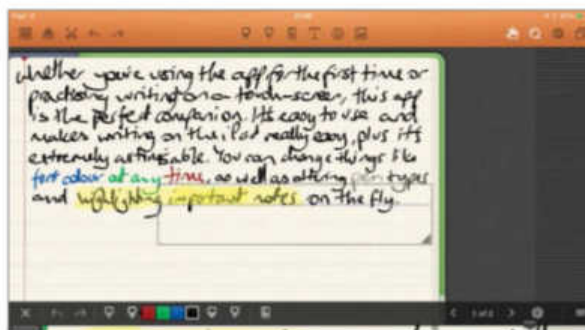 whether you're using the app for the first time or
practising writing on a touch-screen, this app
is the perfect companion. It's easy to use and
makes writing on the iPad really easy, plus it's
extremely customisable. You can change things like
font colour at any time, as well as altering pen types
and highlighting important notes on the fly.
1 of 2